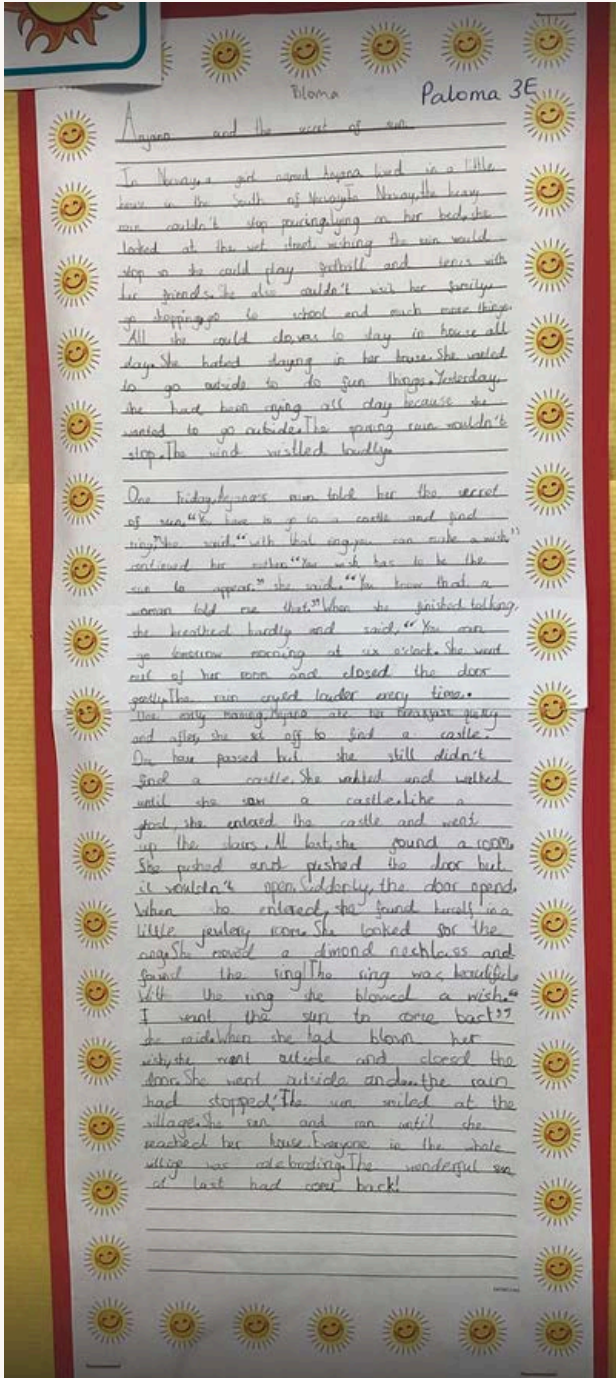 Bloma
Paloma 3E
Anyana and the secret of sun
In Norway, a girl named Anyana lived in a little
house in the South of Norway. In Norway, the heavy
rain couldn't stop pouring. Lying on her bed, she
looked at the wet street, wishing the rain would
stop so she could play football and tenis with
her friends. She also couldn't visit her family,
go shopping, go to school and much more things.
All she could do, was to stay in house all
day. She hated staying in her house. She wanted
to go outside to do fun things. Yesterday,
she had been crying all day because she
wanted to go outside. The pouring rain wouldn't
stop. The wind wistled loudly.
One Friday, Anyana's mum told her the secret
of sun. "You have to go to a castle and find
ring." She said. "with that ring, you can make a wish"
continued her mother. "You wish has to be the
sun to appear." she said. "You know that a
woman told me that." When she finished talking,
she breathed hardly and said, "You can
go tomorrow morning at six o'clock. She went
out of her room and closed the door
gently. The rain cryed louder every time.
One early morning, Anyana ate her breakfast quickly
and after, she set off to find a castle.
One hour passed but she still didn't
find a castle. She walked and walked
until she saw a castle. Like a
ghost, she entered the castle and went
up the stairs. At last, she found a room.
She pushed and pushed the door but
it wouldn't open. Suddonly, the door opend.
When she entered, she found herself in a
little jewlery room. She looked for the
ring. She moved a dimond necklass and
found the ring! The ring was beautiful.
With the ring she blowed a wish. "
I want the sun to come back"
she said. When she had blown her
wish, she went outside and closed the
door. She went outside and... the rain
had stopped! The sun smiled at the
village. She ran and ran until she
reached her house. Everyone in the whole
village was celebrating. The wonderful sun
at last had come back!